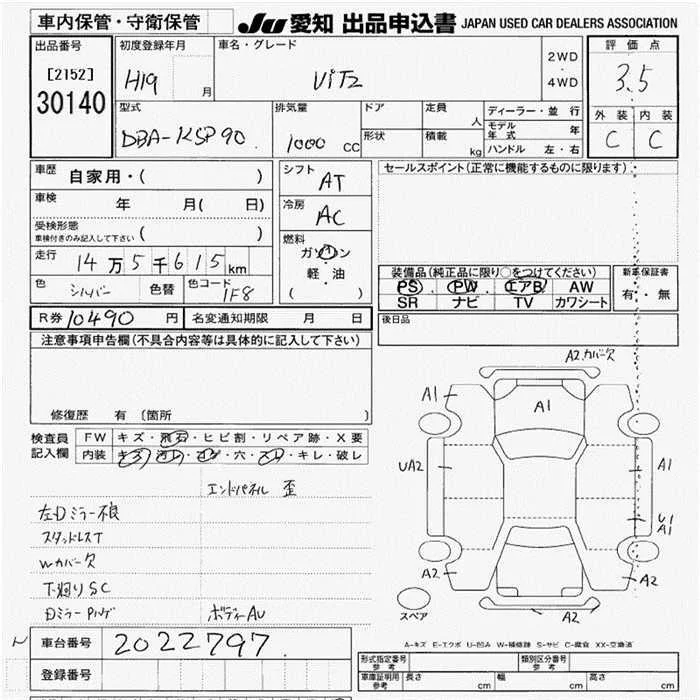 車内保管・守衛保管 JU 愛知 出品申込書 JAPAN USED CAR DEALERS ASSOCIATION
出品番号
[2152]
30140
初度登録年月
H19 月
車名・グレード
ViTz
2WD
・
4WD
評価点
3.5
外装 内装
C C
型式
DBA-KSP90
排気量
1000 CC
ドア
形状
定員
人
積載
kg
ディーラー・並行
モデル年式 年
ハンドル 左・右
車歴 自家用・( )
車検 年 月( 日)
受検形態
車検付きのみ記入して下さい ( )
走行 14万5千615km
色 シルバー 色替 色コード 1F8
シフト
AT
冷房
AC
燃料
ガソリン
軽・油
( )
セールスポイント(正常に機能するものに限ります)
装備品(純正品に限り○をつけてください)
PS PW エアB AW
SR ナビ TV カワシート
新車保証書
有・無
R券 10490 円 名変通知期限 月 日
後日品
注意事項申告欄(不具合内容等は具体的に記入して下さい)
修復歴 有 (箇所 )
検査員記入欄
FW キズ・飛石・ヒビ割・リペア跡・X要
内装 キズ・汚レ・コゲ・穴・スレ・キレ・破レ
エンドパネル 歪
左Dミラー不良
スタッドレスT
Wカバー欠
下廻りSC
ボディーAU
A2 カバ-欠
A1
A1
UA2
A1
U1
A1
A2
A2
A2
スペア
A-キズ E-エクボ U-凹み W-補修跡 S-サビ C-腐食 XX-交換済
車台番号 2022797
登録番号
形式指定番号 参考 類別区分番号 参考
車庫証明用 参考 長さ cm 幅 cm 高さ cm